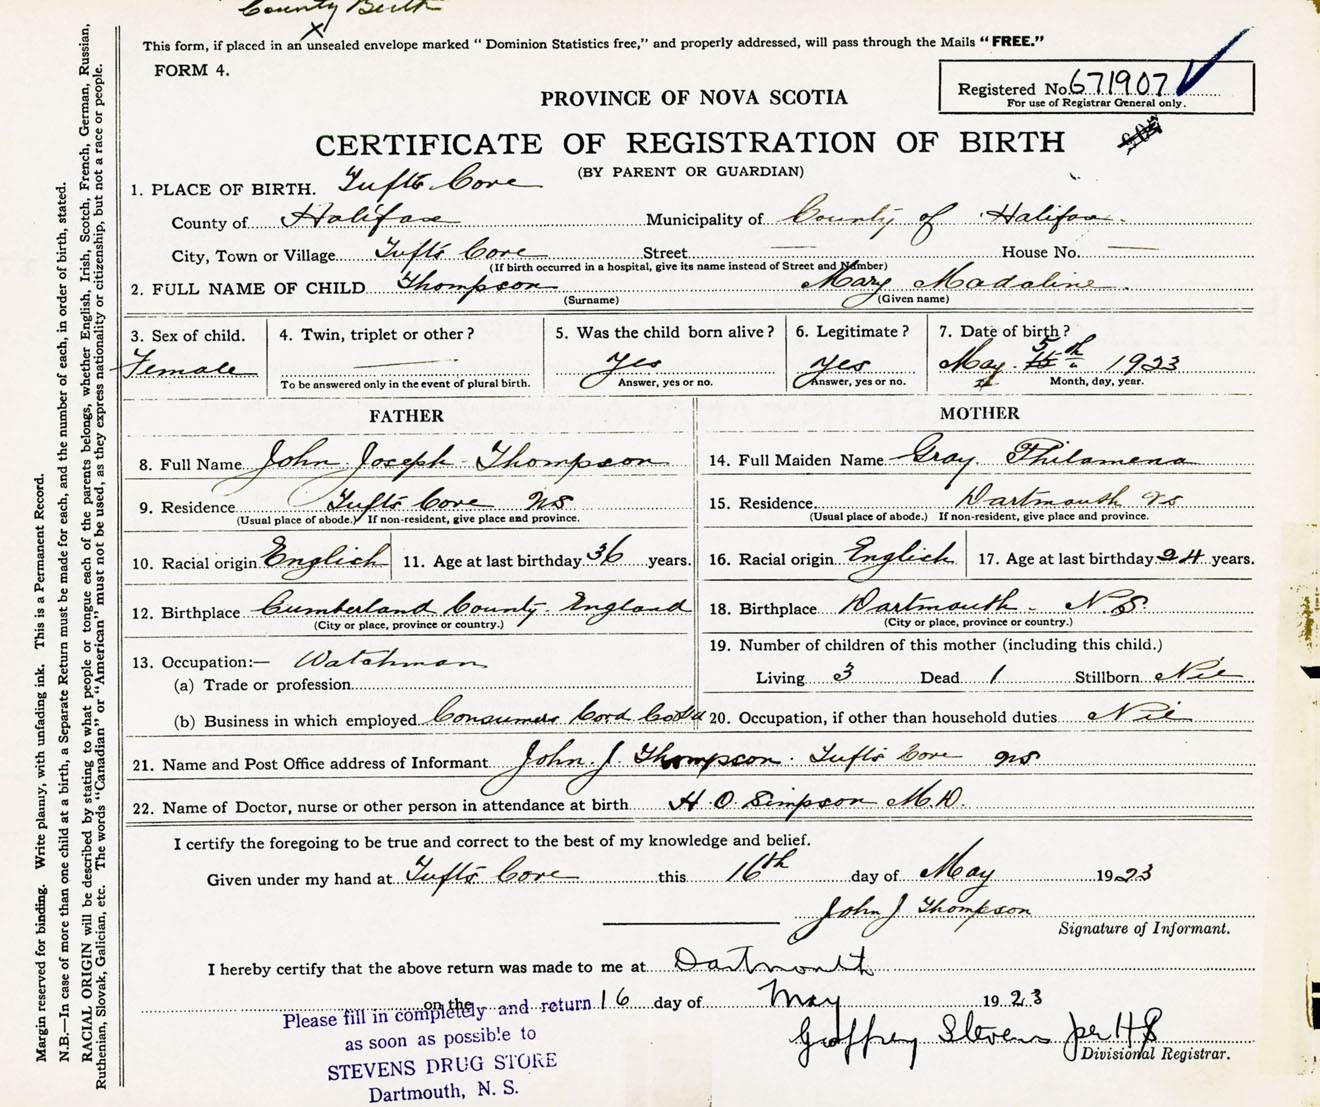 County Birth
This form, if placed in an unsealed envelope marked "Dominion Statistics free," and properly addressed, will pass through the Mails "FREE."
FORM 4.
Registered No. 671907
For use of Registrar General only.
PROVINCE OF NOVA SCOTIA
CERTIFICATE OF REGISTRATION OF BIRTH
(BY PARENT OR GUARDIAN)
1. PLACE OF BIRTH. Tufts Cove
County of Halifax Municipality of County of Halifax
City, Town or Village Tufts Cove Street House No.
(If birth occurred in a hospital, give its name instead of Street and Number)
2. FULL NAME OF CHILD Thompson Mary Madaline
(Surname) (Given name)
3. Sex of child. 4. Twin, triplet or other? 5. Was the child born alive? 6. Legitimate? 7. Date of birth?
Female Yes Yes May 5th 1923
To be answered only in the event of plural birth. Answer, yes or no. Answer, yes or no. Month, day, year.
FATHER MOTHER
8. Full Name John Joseph Thompson 14. Full Maiden Name Gray Philamena
9. Residence Tufts Cove NS 15. Residence Dartmouth NS
(Usual place of abode.) If non-resident, give place and province. (Usual place of abode.) If non-resident, give place and province.
10. Racial origin English 11. Age at last birthday 36 years. 16. Racial origin English 17. Age at last birthday 24 years.
12. Birthplace Cumberland County England 18. Birthplace Dartmouth - N S
(City or place, province or country.) (City or place, province or country.)
19. Number of children of this mother (including this child.)
13. Occupation:— Watchman
Living 3 Dead 1 Stillborn Nil
(a) Trade or profession
(b) Business in which employed Consumers Cord 20. Occupation, if other than household duties Nil
21. Name and Post Office address of Informant John J Thompson Tufts Cove NS
22. Name of Doctor, nurse or other person in attendance at birth H. O. Simpson M.D.
I certify the foregoing to be true and correct to the best of my knowledge and belief.
Given under my hand at Tufts Cove this 16th day of May 1923
John J Thompson
Signature of Informant.
I hereby certify that the above return was made to me at Dartmouth
on the 16 day of May 1923
Geoffrey Stevens per HS
Divisional Registrar.
Please fill in completely and return
as soon as possible to
STEVENS DRUG STORE
Dartmouth, N. S.
Margin reserved for binding. Write plainly, with unfading ink. This is a Permanent Record.
N.B.—In case of more than one child at a birth, a Separate Return must be made for each, and the number of each, in order of birth, stated.
RACIAL ORIGIN will be described by stating to what people or tongue each of the parents belongs, whether English, Irish, Scotch, French, German, Russian,
Ruthenian, Slovak, Galician, etc. The words "Canadian" or "American" must not be used, as they express nationality or citizenship, but not a race or people.